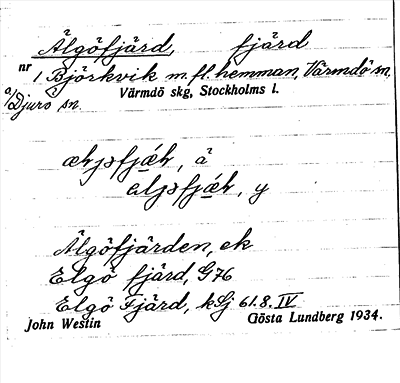 Älgöfjärd, fjärd
nr 1 Björkvik m.fl. hemman, Värmdö sn.
a/ Djurö sn. Värmdö skg, Stockholms l.
ä
y
Älgöfjärden, ek
Elgö fjärd, G 76
Elgö Fjärd, kSj 61.8. IV
John Westin Gösta Lundberg 1934.